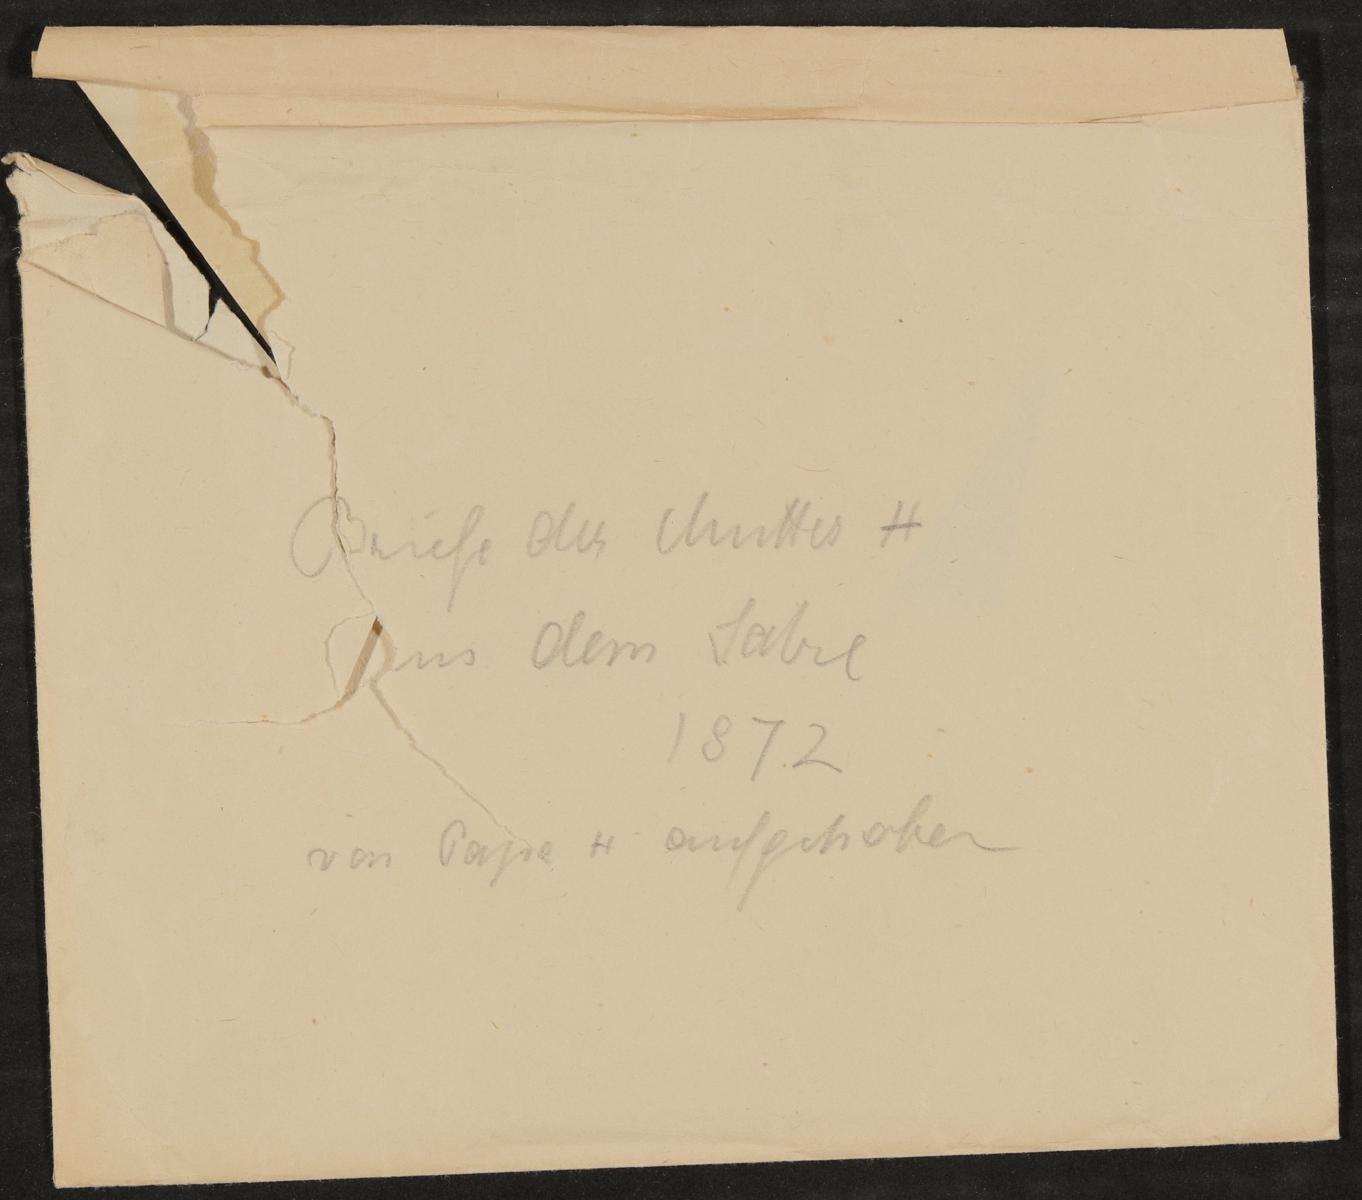 Briefe der Mutter ††
Aus dem Jahre
1872
von Papa †† aufgehoben